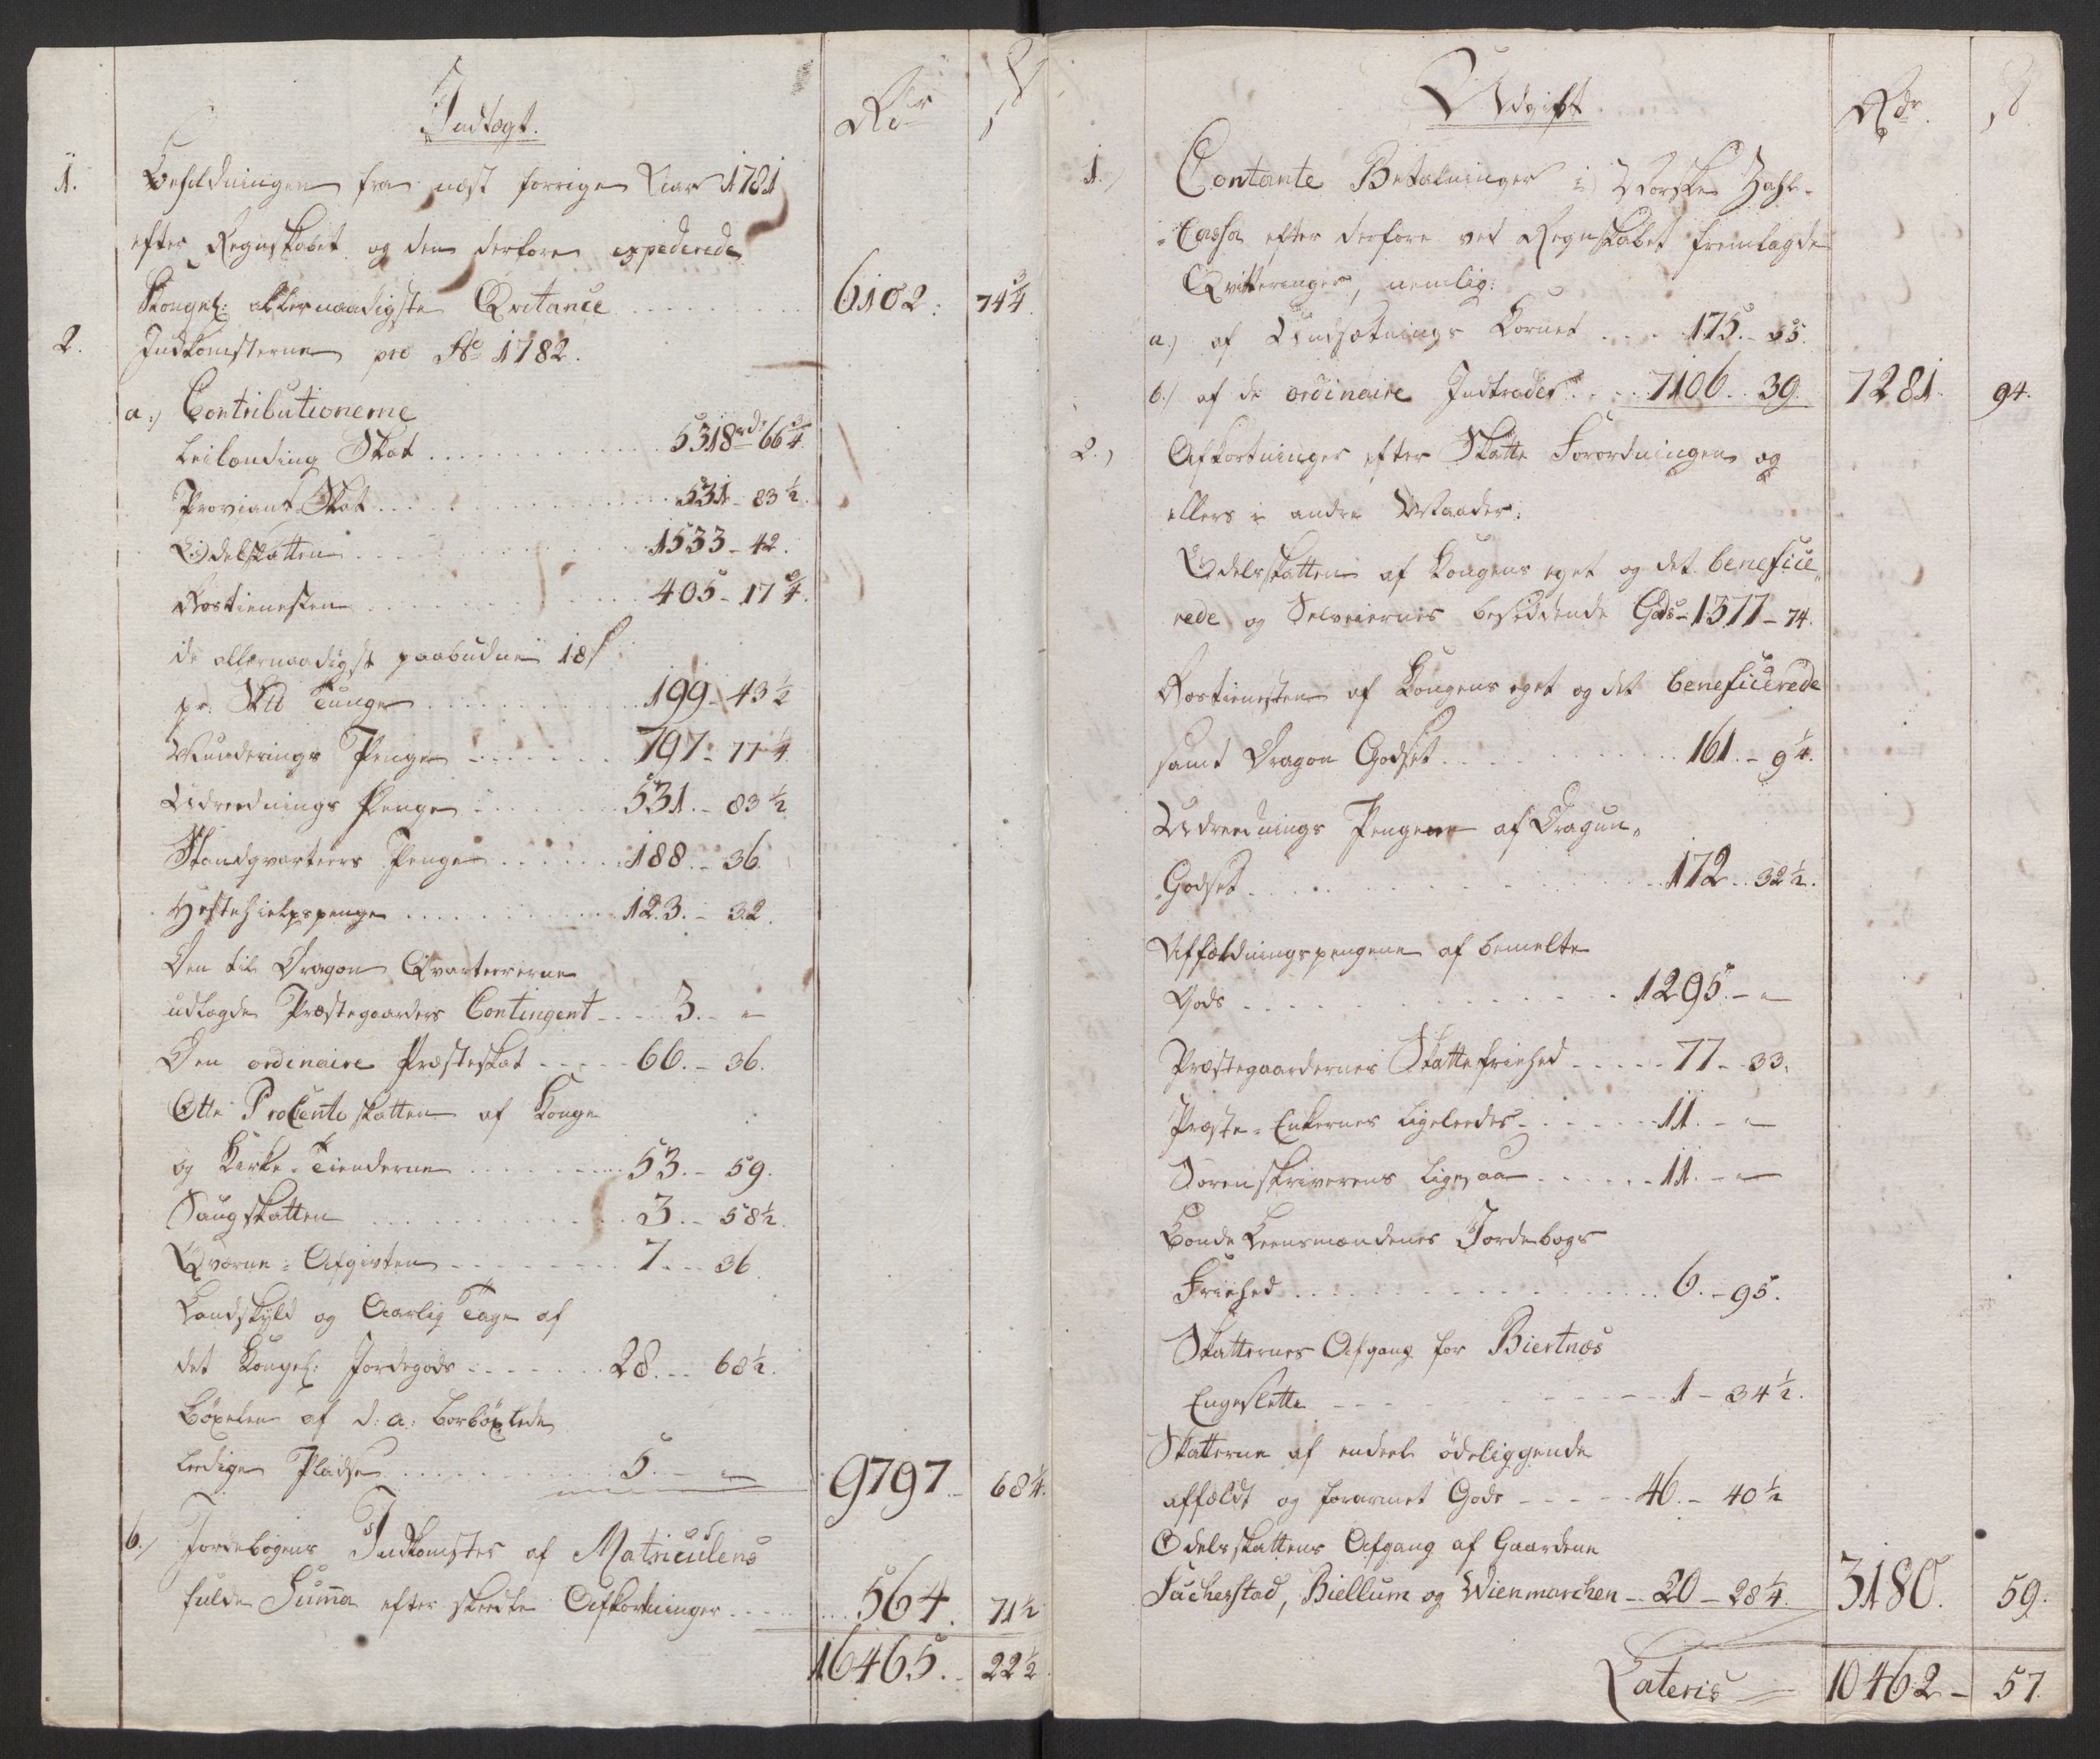 Indtægt.
Rdr ß
1. Beholdningen fra næst forrige Aar 1781
efter Regnskabet og den derfore expederede
Kongel: allernaadigste Qvitance . . . 6102. 74 3/4
2. Indkomsterne pro Ao 1782.
a.) Contributionerne
Leilænding Skat . . . 5318rd: 66 3/4
Proviant Skat . . . 531 - 83 1/2.
Odelskatten . . . 1533 - 42.
Rostienesten . . . 405 - 17 3/4.
de allernaadigst paabudne 18 ß
pr. Skd Tunge . . . 199 - 43 1/2
Munderings Penge . . . 797 - 77 1/4.
Udreednings Penge . . . 531. - 83 1/2
Standqvarteers Penge . . . 188. - 36.
Hestehielpspenge . . . 123. - 32.
Den til Dragon Qvartererne
udlagde Præstegaarders Contingent - - 3. - "
Den ordinaire Præsteskat - - - 66. - 36.
Otte ProCento skatten af Konge
og Kirke-Tienderne . . . 53. - 59.
Saugskatten . . . 3. - 58 1/2.
Qværne-Afgivten - - - 7. - - 36.
Landskyld og Aarlig Tage af
det Kongel: Jordegods - - - 28. - - 68 1/2.
Böxelen af d: a: borböxlede
Ledige Pladse . . . 5. - " 9797. - 68 1/4.
b.) Jordebogens Indkomster af Matriculens
fulde Suma efter skeedte Afkortninger . . . 564. 71 1/2
16465. - 22 1/2
Udgift
Rdr. ß
1.) Contante Betalninger i Norske Zahl-
-Cassa efter derfore ved Regnskabet fremlagde
Qvitteringer, nemlig:
a.) af Undsætnings Kornet . . . 175. - 55.
b.) af de ordinaire Indtrader . . . 7106. . 39. 7281. 94.
2.) Afkortninger efter Skatte Forordningen og
ellers i andre Maader:
Odelsskatten af Kongens eget og det benefice-
rede og Selveiernes besiddende Gods - 1377 - 74.
Rostienesten af Kongens eget og det beneficerede
samt Dragon Godset . . . 161. - 9 1/4.
Udreednings Pengene af Dragun-
Godset . . . 172. . 32 1/2.
Affældningspengene af bemelte
Gods . . . 1295. - "
Præstegaardernes Skattefriehed - - - 77 - - 33.
Præste-Enkernes ligeleedes - - - 11. - "
Sorenskriverens ligesaa - - - 11. - "
Bonde Leensmændenes Jordebogs
Friehed . . . 6. - 95.
Skatternes Afgang for Biertnæs
Engeslette - - - 1 - 34 1/2.
Skatterne af endeel ödeliggende
affældt og forarmet Gods - - - 46. - 40 1/2
Odelsskattens Afgang af Gaardene
Sucherstad, Biellum og Wienmarchen - - 20 - 28 1/4. 3180. 59.
Lateris 10462 - 57.